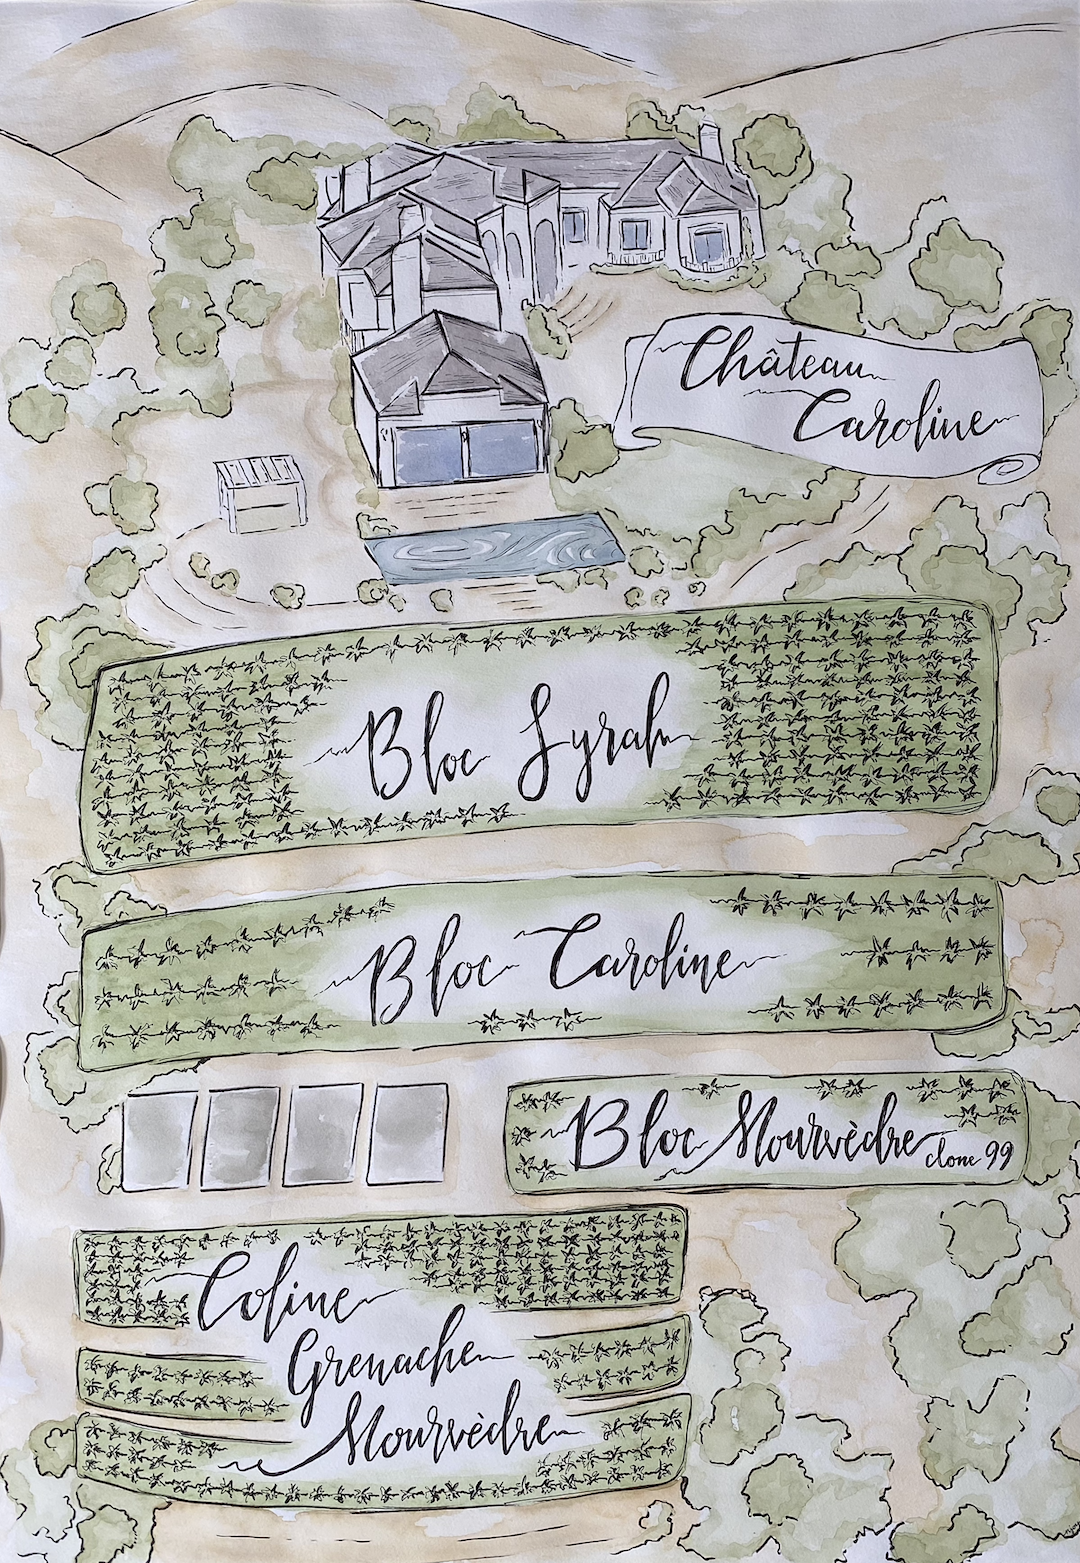 Château
Caroline
Bloc Syrah
Bloc Caroline
Bloc Mourvèdre
clone 99
Coline
Grenache
Mourvèdre